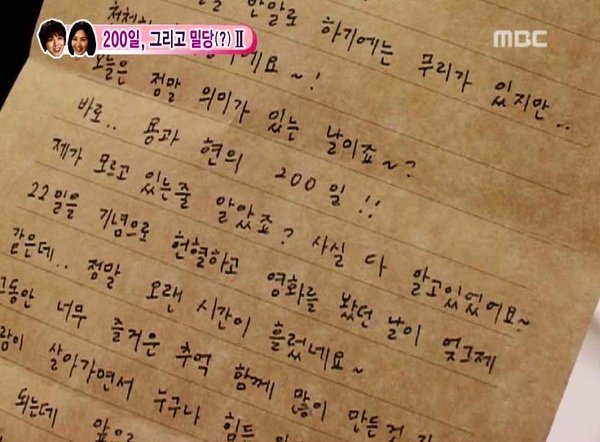 200일, 그리고 밀당(?) II
MBC
반말로 하기에는 무리가 있지만..
오늘은 정말 의미가 있는 날이죠~?
바로.. 용과 현의 200일!!
제가 모르고 있는줄 알았죠? 사실 다 알고있었어요~
22일을 기념으로 헌혈하고 영화를 봤던 날이 엊그제
같은데.. 정말 오랜 시간이 흘렀네요~
그동안 너무 즐거운 추억 함께 많이 만든
살아가면서 누구나 힘든
되는데 앞으로